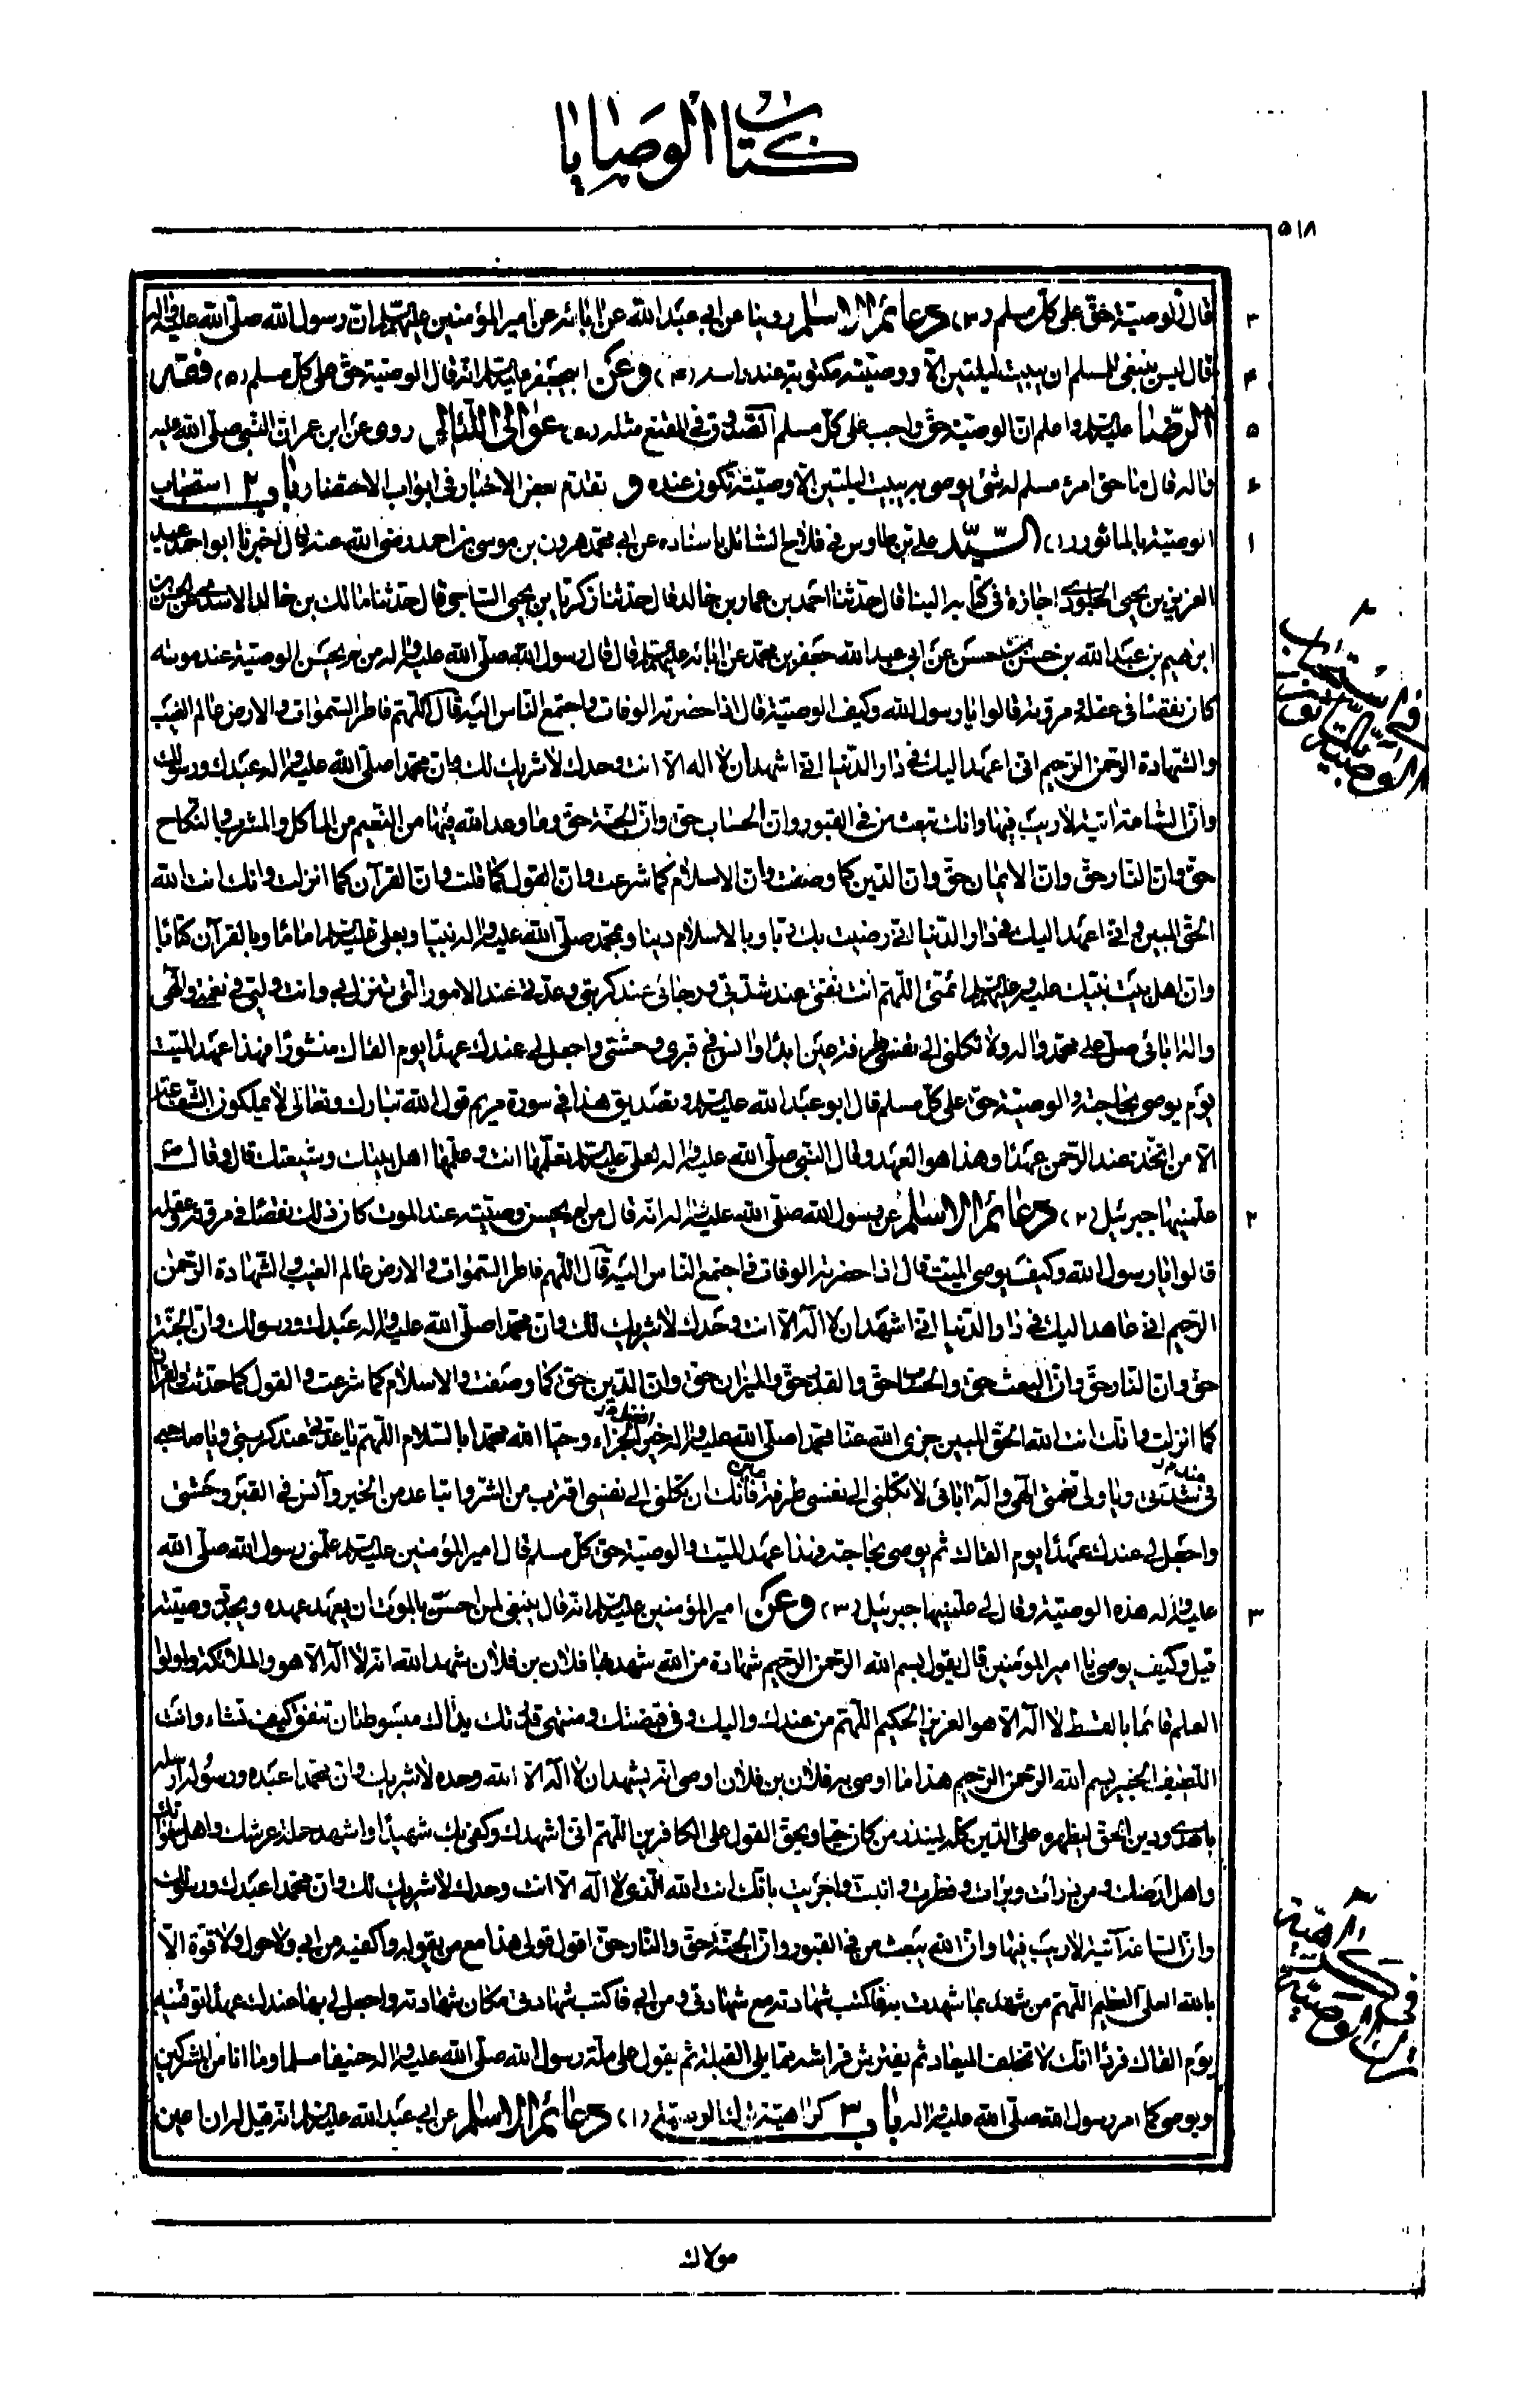 كتاب الوصايا
٥١٨
قال الوصية حق على كل مسلم (٣) دعائم الاسلام روينا عن ابي عبد الله عن ابائه عن امير المؤمنين عليهم السلام ان رسول الله صلى الله عليه واله
٣
قال ليس ينبغي للمسلم ان يبيت ليلتين الا ووصيته مكتوبة عند راسه (٤) وعن ابي جعفر عليه السلام انه قال الوصية حق على كل مسلم (٥) فقه
٤
الرضا عليه السلام واعلم ان الوصية حق واجب على كل مسلم الصدوق في المقنع مثله عوالي اللئالي روى عن ابن عمر ان النبي صلى الله عليه
٥
واله قال ما حق امرء مسلم له شئ يوصي به يبيت ليلتين الا وصيته تكون عنده و تقدم بعض الاخبار في ابواب الاحتضار باب ٢ استحباب
٦
الوصية بالماثور (١) السيد علي بن طاوس في فلاح السائل باسناده عن ابي محمد هرون بن موسى بن احمد رضي الله عنه قال اخبرنا ابو احمد عبد
١
العزيز بن يحيى الجلودي اجازة في كتابه الينا قال حدثنا احمد بن عمار بن خالد قال حدثنا زكريا بن يحيى الساجي قال حدثنا مالك بن خالد الاسدي عن الحسن بن
ابرهيم بن عبد الله بن حسن بن حسن عن ابي عبد الله جعفر بن محمد عن ابائه عليهم السلام قال قال رسول الله صلى الله عليه واله من لم يحسن الوصية عند موته
كان نقصا في عقله ومروته قالوا يا رسول الله وكيف الوصية قال اذا حضرته الوفات واجتمع الناس اليه قال اللهم فاطر السموات والارض عالم الغيب
والشهادة الرحمن الرحيم اني اعهد اليك في دار الدنيا اني اشهد ان لا اله الا انت وحدك لا شريك لك وان محمدا صلى الله عليه واله عبدك ورسولك
وان الساعة اتية لا ريب فيها وانك تبعث من في القبور وان الحساب حق وان الجنة حق وما وعد الله فيها من النعيم من الماكل والمشرب والنكاح
حق وان النار حق وان الايمان حق وان الدين كما وصفت وان الاسلام كما شرعت وان القول كما قلت وان القرآن كما انزلت وانك انت الله
الحق المبين واني اعهد اليك في دار الدنيا اني رضيت بك ربا وبالاسلام دينا وبمحمد صلى الله عليه واله نبيا وبعلي عليه السلام اماما وبالقرآن كتابا
وان اهل بيت نبيك عليه وعليهم السلام ائمتي اللهم انت ثقتي عند شدتي ورجائي عند كربتي وعدتي عند الامور التي تنزل بي وانت وليي في نعمتي والهي
واله ابائي صل على محمد واله ولا تكلني الى نفسي طرفة عين ابدا وانس في قبري وحشتي واجعل لي عندك عهدا يوم القاك منشورا فهذا عهد الميت
يوم يوصي بحاجته والوصية حق على كل مسلم قال ابو عبد الله عليه السلام وتصديق هذا في سورة مريم قول الله تبارك وتعالى لا يملكون الشفاعة
الا من اتخذ عند الرحمن عهدا وهذا هو العهد وقال النبي صلى الله عليه واله لعلي عليه السلام تعلمها انت وعلمها اهل بيتك وشيعتك قال وقال ص
علمنيها جبرئيل (٢) دعائم الاسلام عن رسول الله صلى الله عليه واله انه قال من لم يحسن وصيته عند الموت كان ذلك نقصا في مروته وعقله
٢
قالوا يا رسول الله وكيف يوصي الميت قال اذا حضرته الوفات واجتمع الناس اليه قال اللهم فاطر السموات والارض عالم الغيب والشهادة الرحمن
الرحيم اني عاهد اليك في دار الدنيا اني اشهد ان لا اله الا انت وحدك لا شريك لك وان محمدا صلى الله عليه واله عبدك ورسولك وان الجنة
حق وان النار حق وان البعث حق والحساب حق والقدر حق والميزان حق وان الدين حق كما وصفت والاسلام كما شرعت والقول كما حدثت والقرآن
كما انزلت وانك انت الله الحق المبين جزى الله عنا محمدا صلى الله عليه واله خير الجزاء وحيا الله محمدا بالسلام اللهم يا عدتي عند كربتي ويا صاحبي
في شدتي ويا ولي نعمتي الهي واله ابائي لا تكلني الى نفسي طرفة عين فانك ان تكلني الى نفسي اقترب من الشر واتباعد من الخير وآنس في القبر وحشتي
واجعل لي عندك عهدا يوم القاك ثم يوصي بحاجته وهذا عهد الميت والوصية حق كل مسلم قال امير المؤمنين عليه السلام علمني رسول الله صلى الله
عليه واله هذه الوصية وقال لي علمنيها جبرئيل (٣) وعن امير المؤمنين عليه السلام انه قال ينبغي لمن احس بالموت ان يعهد عهده ويجدد وصيته
٣
قيل وكيف يوصي يا امير المؤمنين قال يقول بسم الله الرحمن الرحيم شهادة من الله شهد بها فلان بن فلان شهد الله انه لا اله الا هو والملائكة واولوا
العلم قائما بالقسط لا اله الا هو العزيز الحكيم اللهم من عندك واليك وفي قبضتك ومنتهى قدرتك يداك مبسوطتان تنفق كيف تشاء وانت
اللطيف الخبير بسم الله الرحمن الرحيم هذا ما اوصى به فلان بن فلان اوصى انه يشهد ان لا اله الا الله وحده لا شريك له وان محمدا عبده ورسوله ارسله
بالهدى ودين الحق ليظهره على الدين كله لينذر من كان حيا ويحق القول على الكافرين اللهم اني اشهدك وكفى بك شهيدا واشهد حملة عرشك واهل سمواتك
واهل ارضك ومن ذرات وبرات وفطرت وانبت واجريت بانك انت الله الذي لا اله الا انت وحدك لا شريك لك وان محمدا عبدك ورسولك
وان الساعة آتية لا ريب فيها وان الله يبعث من في القبور وان الجنة حق والنار حق اقول قولي هذا مع من يقوله واكفيه من ابى ولا حول ولا قوة الا
بالله العلي العظيم اللهم من شهد بما شهدت به فاكتب شهادته مع شهادتي ومن ابى فاكتب شهادتي مكان شهادته واجعل لي بها عندك عهدا توفنيه
يوم القاك فردا انك لا تخلف الميعاد ثم يفترش فراشه مما يلي القبلة ثم يقول على ملة رسول الله صلى الله عليه واله حنيفا مسلما وما انا من المشركين
ويوصي كما امر رسول الله صلى الله عليه واله باب ٣ كراهية ترك الوصية (١) دعائم الاسلام عن ابي عبد الله عليه السلام انه قيل له ان اعين
٢
في استحباب
الوصية بالماثور
٣
في كراهية
ترك الوصية
مولاك